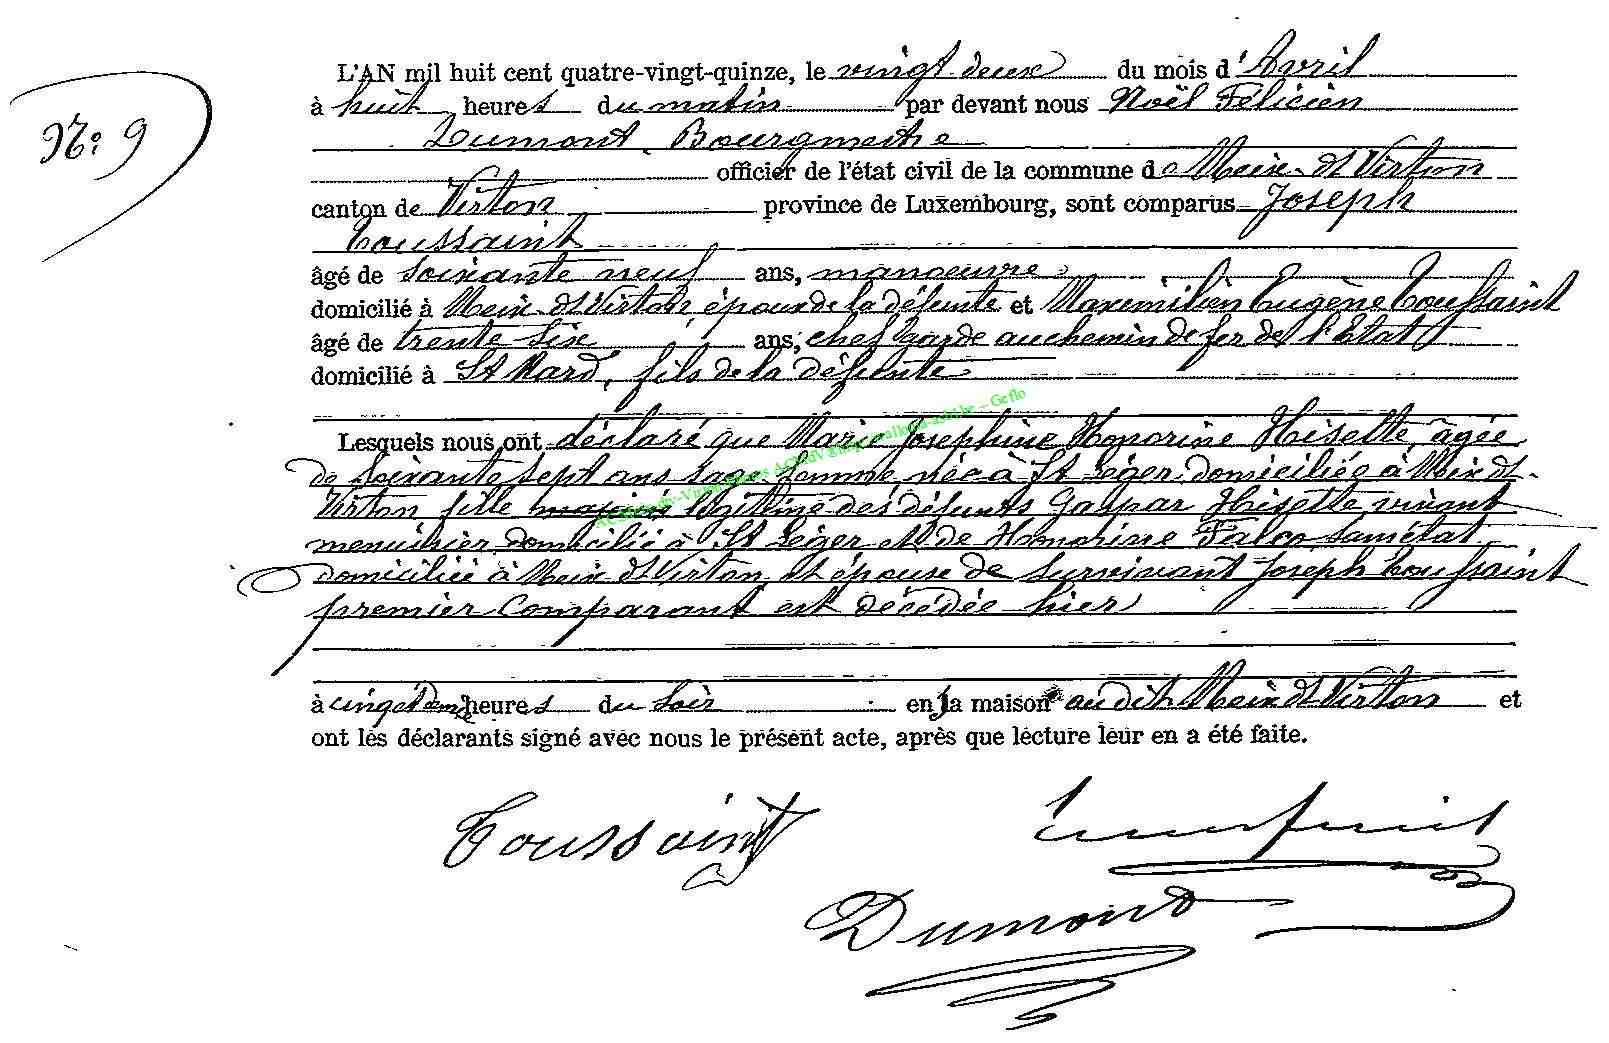 N°: 9
L'AN mil huit cent quatre-vingt-quinze, le vingt deux du mois d'Avril
à huit heures du matin par devant nous Noël Félicien
Dumont, Bourgmestre
officier de l'état civil de la commune de Meix-dt Virton
canton de Virton province de Luxembourg, sont comparus Joseph
Toussaint
âgé de soixante neuf ans, manœuvre
domicilié à Meix-dt Virton, époux de la défunte et Maximilien Eugène Toussaint
âgé de trente six ans, chef garde au chemin de fer de l'Etat
domicilié à St Mard, fils de la défunte
Lesquels nous ont déclaré que Marie Joséphine Honorine Hisette, âgée
de soixante sept ans sage femme, née à St Léger, domiciliée à Meix dt-
Virton fille majeure légitime des défunts Gaspar Hisette vivant
menuisier domicilié à St Léger et de Honorine sans état
domiciliée à Meix dt Virton et épouse de survivant Joseph Toussaint
premier comparant est décédée hier
à cinq et demie heures du soir en la maison au dit Meix dt Virton et
ont les déclarants signé avec nous le présent acte, après que lecture leur en a été faite.
Toussaint Toussaint
Dumont